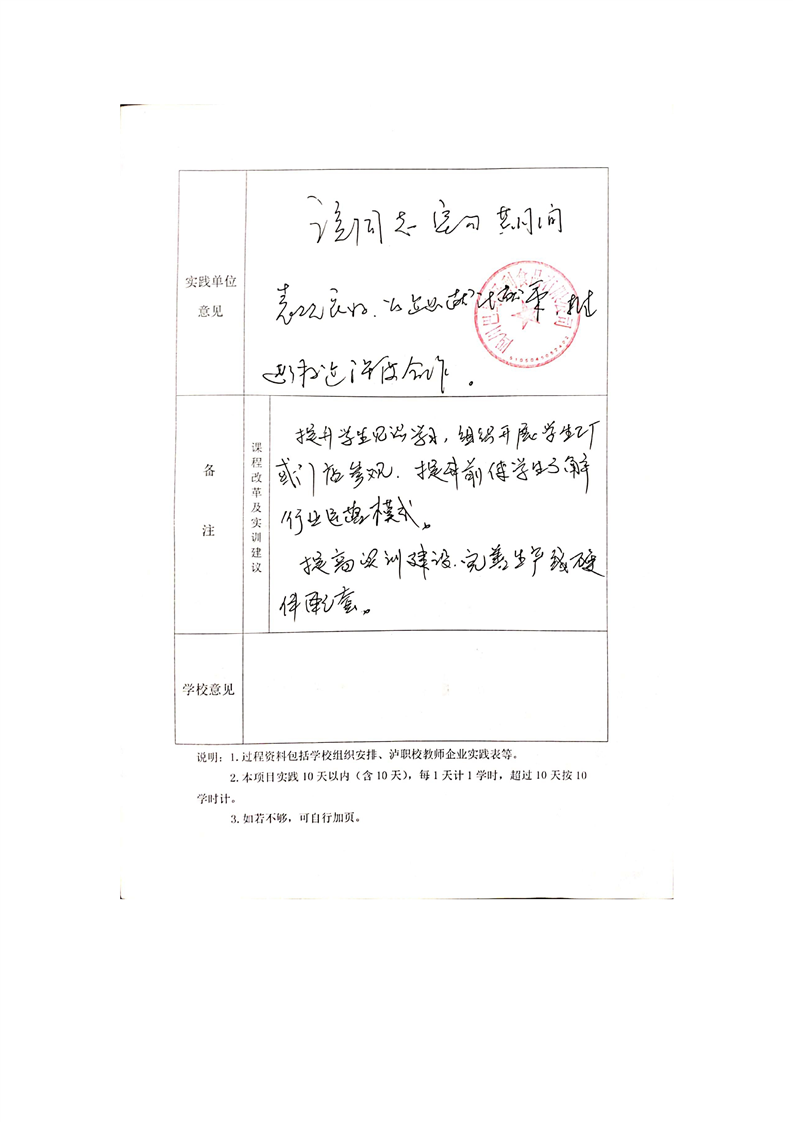 实践单位
意见
该同志实习期间
表现良好，
进行校企深度合作。
备
注
课程改革及实训建议
提升学生见识学习，组织开展学生工厂
或门店参观，提早前使学生了解
行业运营模式。
提高实训建设，完善生产线硬
件配套。
学校意见
说明：1.过程资料包括学校组织安排、泸职校教师企业实践表等。
2.本项目实践 10 天以内（含 10 天），每 1 天计 1 学时，超过 10 天按 10
学时计。
3.如若不够，可自行加页。